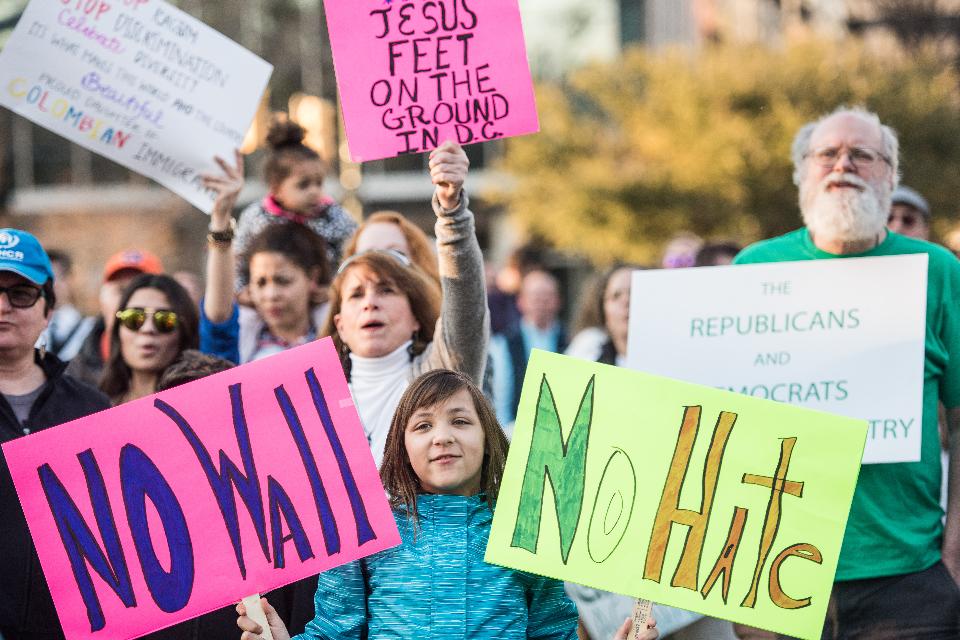 STOP RACISM
STOP DISCRIMINATION
Celebrate DIVERSITY
IT'S WHAT MAKES THIS WORLD AND THIS COUNTRY
Beautiful
PROUD DAUGHTER OF
COLOMBIAN IMMIGRANTS
JESUS
FEET
ON THE
GROUND
IN D.C.
THE
REPUBLICANS
AND
DEMOCRATS
TRY
NO WAll
NO HAte